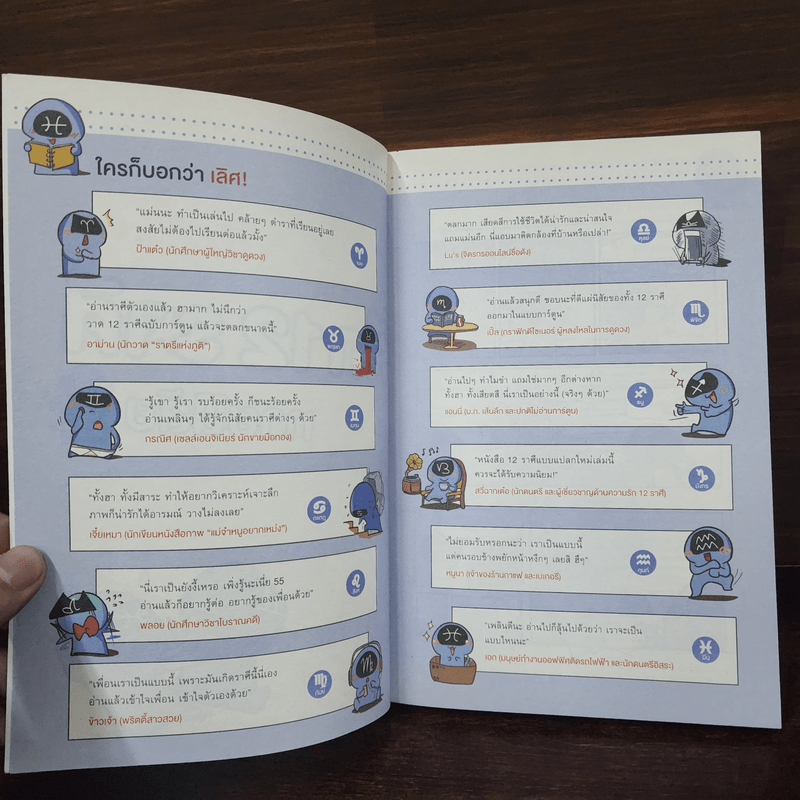 ใครก็บอกว่า เลิศ!
"แม่นนะ ทำเป็นเล่นไป คล้ายๆ ตำราที่เรียนอยู่เลย
สงสัยไม่ต้องไปเรียนต่อแล้วมั้ง"
ป้าแต๋ว (นักศึกษาผู้ใหญ่วิชาดูดวง)
เมษ
"อ่านราศีตัวเองแล้ว ฮามาก ไม่นึกว่า
วาด 12 ราศีฉบับการ์ตูน แล้วจะตลกขนาดนี้"
อาม่าน (นักวาด "ราตรีแห่งภูติ")
พฤษภ
"รู้เขา รู้เรา รบร้อยครั้ง ก็ชนะร้อยครั้ง
อ่านเพลินๆ ได้รู้จักนิสัยคนราศีต่างๆ ด้วย"
กรณิศ (เซลล์เอนจิเนียร์ นักขายมือทอง)
เมถุน
"ทั้งฮา ทั้งมีสาระ ทำให้อยากวิเคราะห์เจาะลึก
ภาพก็น่ารักได้อารมณ์ วางไม่ลงเลย"
เจี๊ยเหมา (นักเขียนหนังสือภาพ "แม่จ๋าหนูอยากเหม่ง")
กรกฎ
"นี่เราเป็นยังงี้เหรอ เพิ่งรู้นะเนี่ย 55
อ่านแล้วก็อยากรู้ต่อ อยากรู้ของเพื่อนด้วย"
พลอย (นักศึกษาวิชาโบราณคดี)
สิงห์
"เพื่อนเราเป็นแบบนี้ เพราะมันเกิดราศีนี้นี่เอง
อ่านแล้วเข้าใจเพื่อน เข้าใจตัวเองด้วย"
ข้าวเจ้า (พริตตี้สาวสวย)
กันย์
"ตลกมาก เสียดสีการใช้ชีวิตได้น่ารักและน่าสนใจ
แถมแม่นอีก นี่แอบมาติดกล้องที่บ้านหรือเปล่า!"
Lu's (จิตรกรออนไลน์ชื่อดัง)
ตุลย์
"อ่านแล้วสนุกดี ชอบนะที่ตีแผ่นิสัยของทั้ง 12 ราศี
ออกมาในแบบการ์ตูน"
เป้ิล (กราฟิกดีไซเนอร์ ผู้หลงใหลในการดูดวง)
พิจิก
"อ่านไปๆ ทำไมขำ แถมใช่มากๆ อีกต่างหาก
ทั้งฮา ทั้งเสียดสี นี่เราเป็นอย่างนี้ (จริงๆ ด้วย)"
แอนนี่ (บ.ก. เส้นลึก และปกติไม่อ่านการ์ตูน)
ธนู
"หนังสือ 12 ราศีแบบแปลกใหม่เล่มนี้
ควรจะได้รับความนิยม!"
สวี่ฉากเต๋อ (นักดนตรี และผู้เชี่ยวชาญด้านความรัก 12 ราศี)
มังกร
"ไม่ยอมรับหรอกนะว่า เราเป็นแบบนี้
แต่คนรอบข้างพยักหน้าหงึกๆ เลยสิ ฮึๆ"
หนูนา (เจ้าของร้านกาแฟ และเบเกอรี่)
กุมภ์
"เพลินดีนะ อ่านไปก็ลุ้นไปด้วยว่า เราจะเป็น
แบบไหนนะ"
เอก (มนุษย์ทำงานออฟฟิศติดรถไฟฟ้า และนักดนตรีอิสระ)
มีน